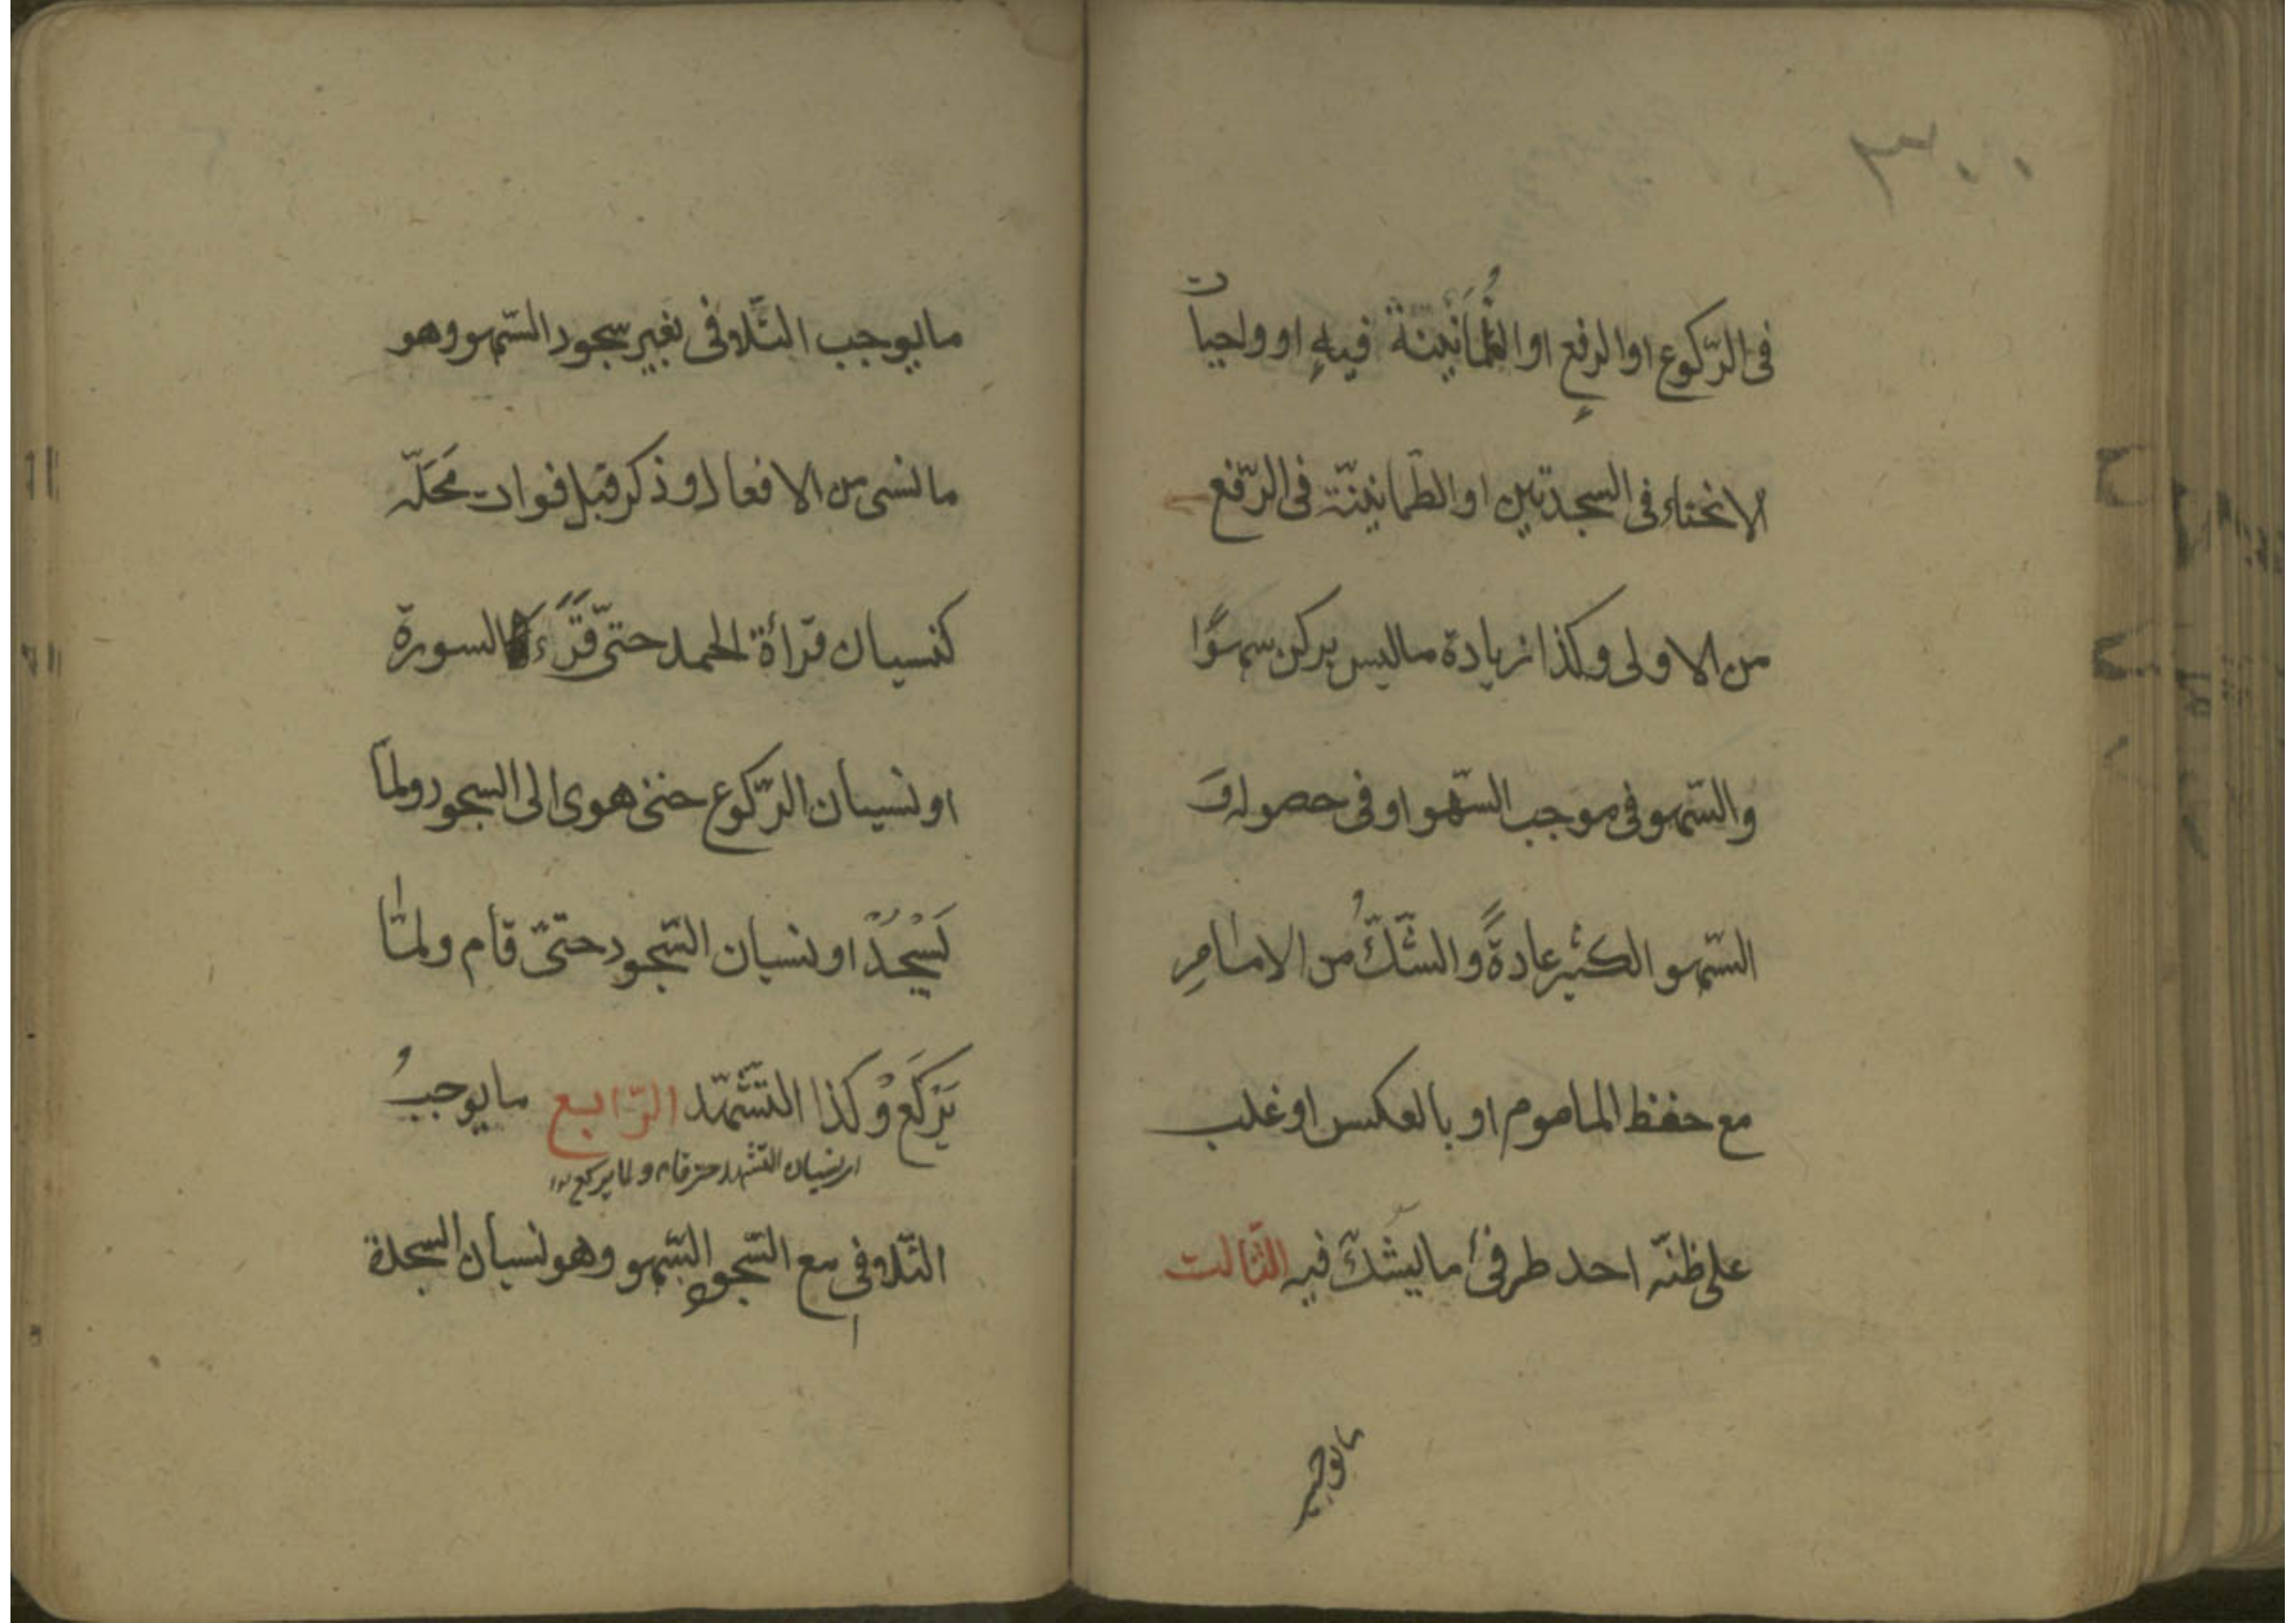 ٣٠٠
فى الرّكوع او الرفعِ او الطُّمَأنينة فيهِ او واجبات
الانحناء فى السجدتين او الطّمانينّة فى الرّفع
من الاولى وكذا زيادة ماليس بركن سهوًا
والسّهو فى موجب السّهو او فى حصوله وَ
السّهو الكثير عادةً والشّكُّ من الامامِ
مع حفظ الماموم او بالعكس او غلب
على ظنّه احد طرفىْ ما يشكّ فيه الثّالث
مايوجب
مايوجب التّلافى بغير سجود السّهو وهو
مانسى من الافعال وذكر قبل فوات مَحَلّه
كنسيان قرأة الحمد حتّى قَرَءَ السورة
او نسيان الرّكوع حتى هوى الى السجود ولمّا
يَسْجُدْ او نسيان السّجود حتّى قام ولمّا
يَرْكَعْ وكذا التّشّهّد الرّابع مايوجبُ
او نسيان التشهد حتى قام ولما يركع
التّلافى مع السّجود السّهو وهو نسيان السجدة